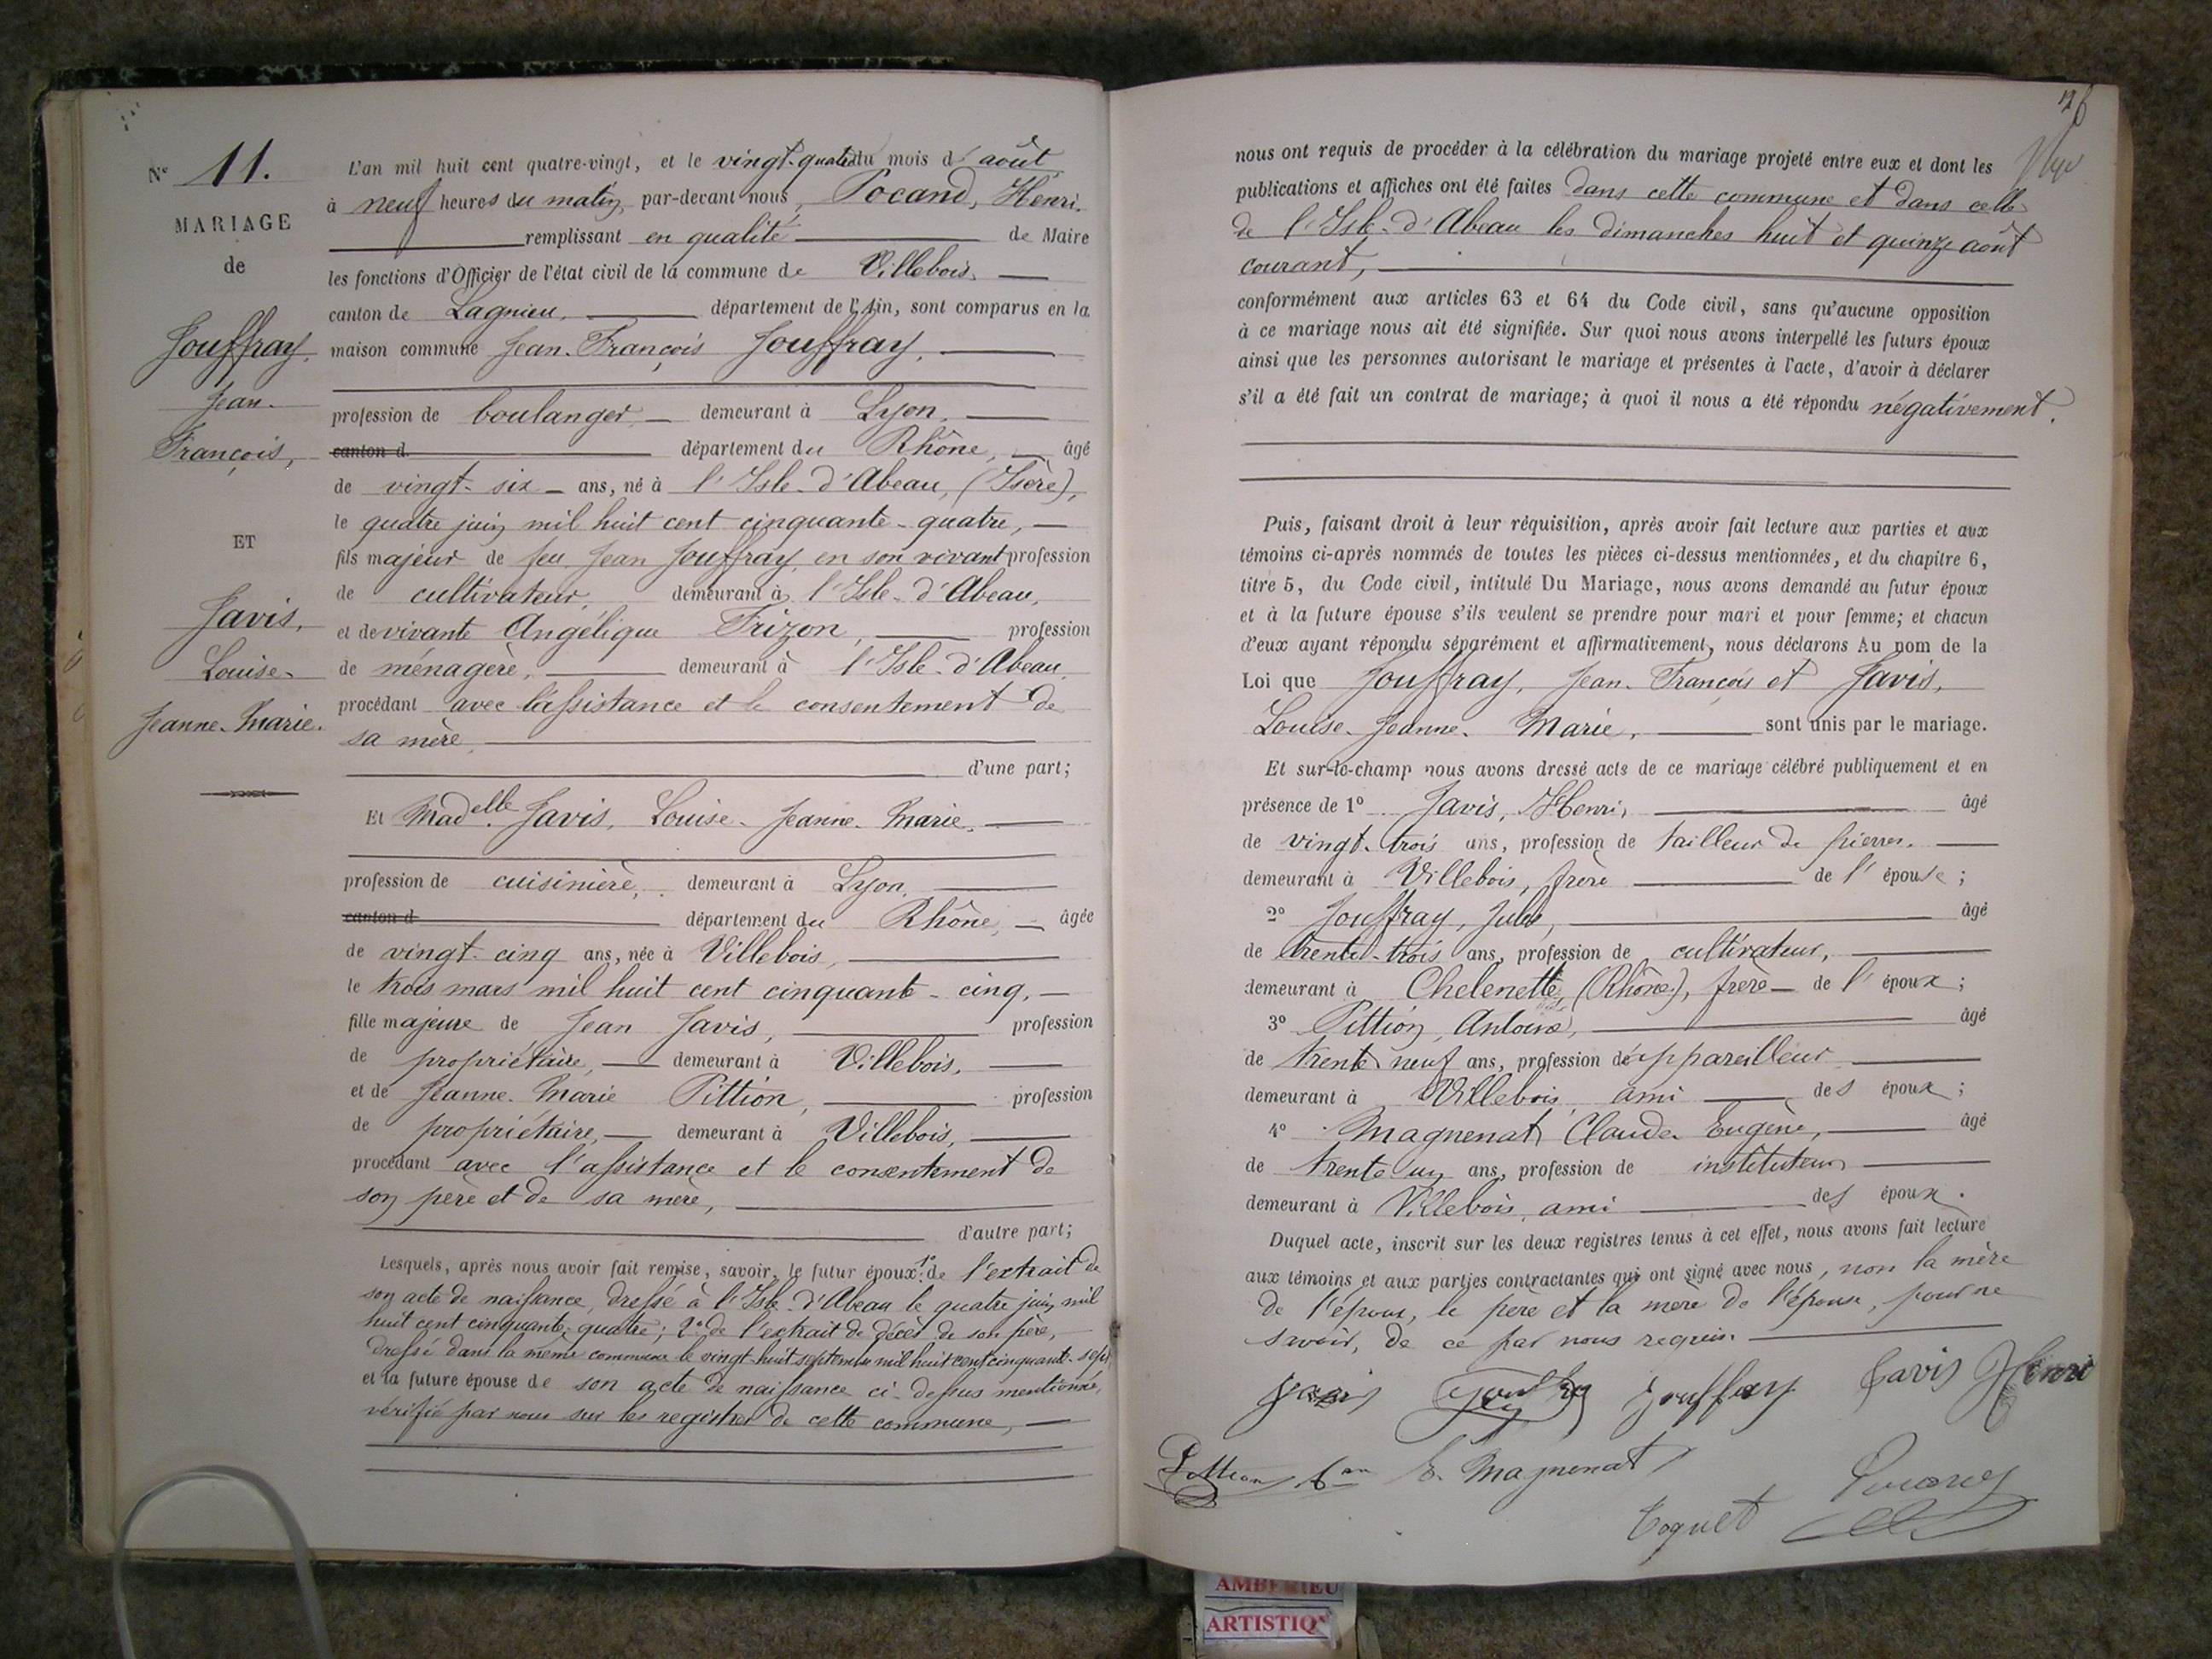 N° 11.
MARIAGE
de
Jouffray,
Jean-
François,
ET
Javis,
Louise-
Jeanne-Marie.
L'an mil huit cent quatre-vingt, et le vingt-quatre du mois d'août
à neuf heures du matin, par-devant nous, Pocand, Henri.
remplissant en qualité de Maire
les fonctions d'Officier de l'état civil de la commune de Villebois,
canton de Lagnieu, département de l'Ain, sont comparus en la
maison commune Jean-François Jouffray,
profession de boulanger demeurant à Lyon,
canton d département du Rhône, âgé
de vingt-six ans, né à l'Isle-d'Abeau, (Isère),
le quatre juin mil huit cent cinquante-quatre,
fils majeur de feu Jean Jouffray, en son vivant profession
de cultivateur, demeurant à l'Isle-d'Abeau,
et de vivante Angélique Frizon, profession
de ménagère, demeurant à l'Isle-d'Abeau,
procédant avec l'assistance et le consentement de
sa mère,
d'une part;
Et Madelle Javis, Louise-Jeanne-Marie,
profession de cuisinière, demeurant à Lyon,
canton d département du Rhône, âgée
de vingt-cinq ans, née à Villebois,
le trois mars mil huit cent cinquante-cinq,
fille majeure de Jean Javis, profession
de propriétaire, demeurant à Villebois,
et de Jeanne-Marie Pittion, profession
de propriétaire, demeurant à Villebois,
procédant avec l'assistance et le consentement de
son père et de sa mère,
d'autre part;
Lesquels, après nous avoir fait remise, savoir, le futur époux: 1° de l'extrait de
son acte de naissance, dressé à l'Isle-d'Abeau le quatre juin mil
huit cent cinquante-quatre; 2° de l'extrait de décès de son père,
dressé dans la même commune le vingt-huit septembre mil huit cent cinquante-sept
et la future épouse de son acte de naissance ci-dessus mentionné,
vérifié par nous sur les registres de cette commune,
26
nous ont requis de procéder à la célébration du mariage projeté entre eux et dont les
publications et affiches ont été faites dans cette commune et dans celle
de l'Isle-d'Abeau les dimanches huit et quinze août
courant,
conformément aux articles 63 et 64 du Code civil, sans qu'aucune opposition
à ce mariage nous ait été signifiée. Sur quoi nous avons interpellé les futurs époux
ainsi que les personnes autorisant le mariage et présentes à l'acte, d'avoir à déclarer
s'il a été fait un contrat de mariage; à quoi il nous a été répondu négativement.
Puis, faisant droit à leur réquisition, après avoir fait lecture aux parties et aux
témoins ci-après nommés de toutes les pièces ci-dessus mentionnées, et du chapitre 6,
titre 5, du Code civil, intitulé Du Mariage, nous avons demandé au futur époux
et à la future épouse s'ils veulent se prendre pour mari et pour femme; et chacun
d'eux ayant répondu séparément et affirmativement, nous déclarons Au nom de la
Loi que Jouffray, Jean-François et Javis,
Louise-Jeanne-Marie, sont unis par le mariage.
Et sur-le-champ nous avons dressé acte de ce mariage célébré publiquement et en
présence de 1° Javis, Henri, âgé
de vingt-trois ans, profession de tailleur de pierres.
demeurant à Villebois, frère de l'épouse;
2° Jouffray, Jules, âgé
de trente-trois ans, profession de cultivateur,
demeurant à Chelenette, (Rhône), frère de l'époux;
3° Pittion, Antoine, âgé
de trente neuf ans, profession d'appareilleur
demeurant à Villebois, ami des époux;
4° Magnenat Claude Eugène, âgé
de trente un ans, profession de instituteur
demeurant à Villebois, ami des époux.
Duquel acte, inscrit sur les deux registres tenus à cet effet, nous avons fait lecture
aux témoins et aux parties contractantes qui ont signé avec nous, non la mère
de l'époux, le père et la mère de l'épouse, pour ne
savoir, de ce par nous requis.
Javis Jouffray Jouffray Javis Henri
Pittion E. Magnenat
Toquet
AMBERIEU
ARTISTIQ